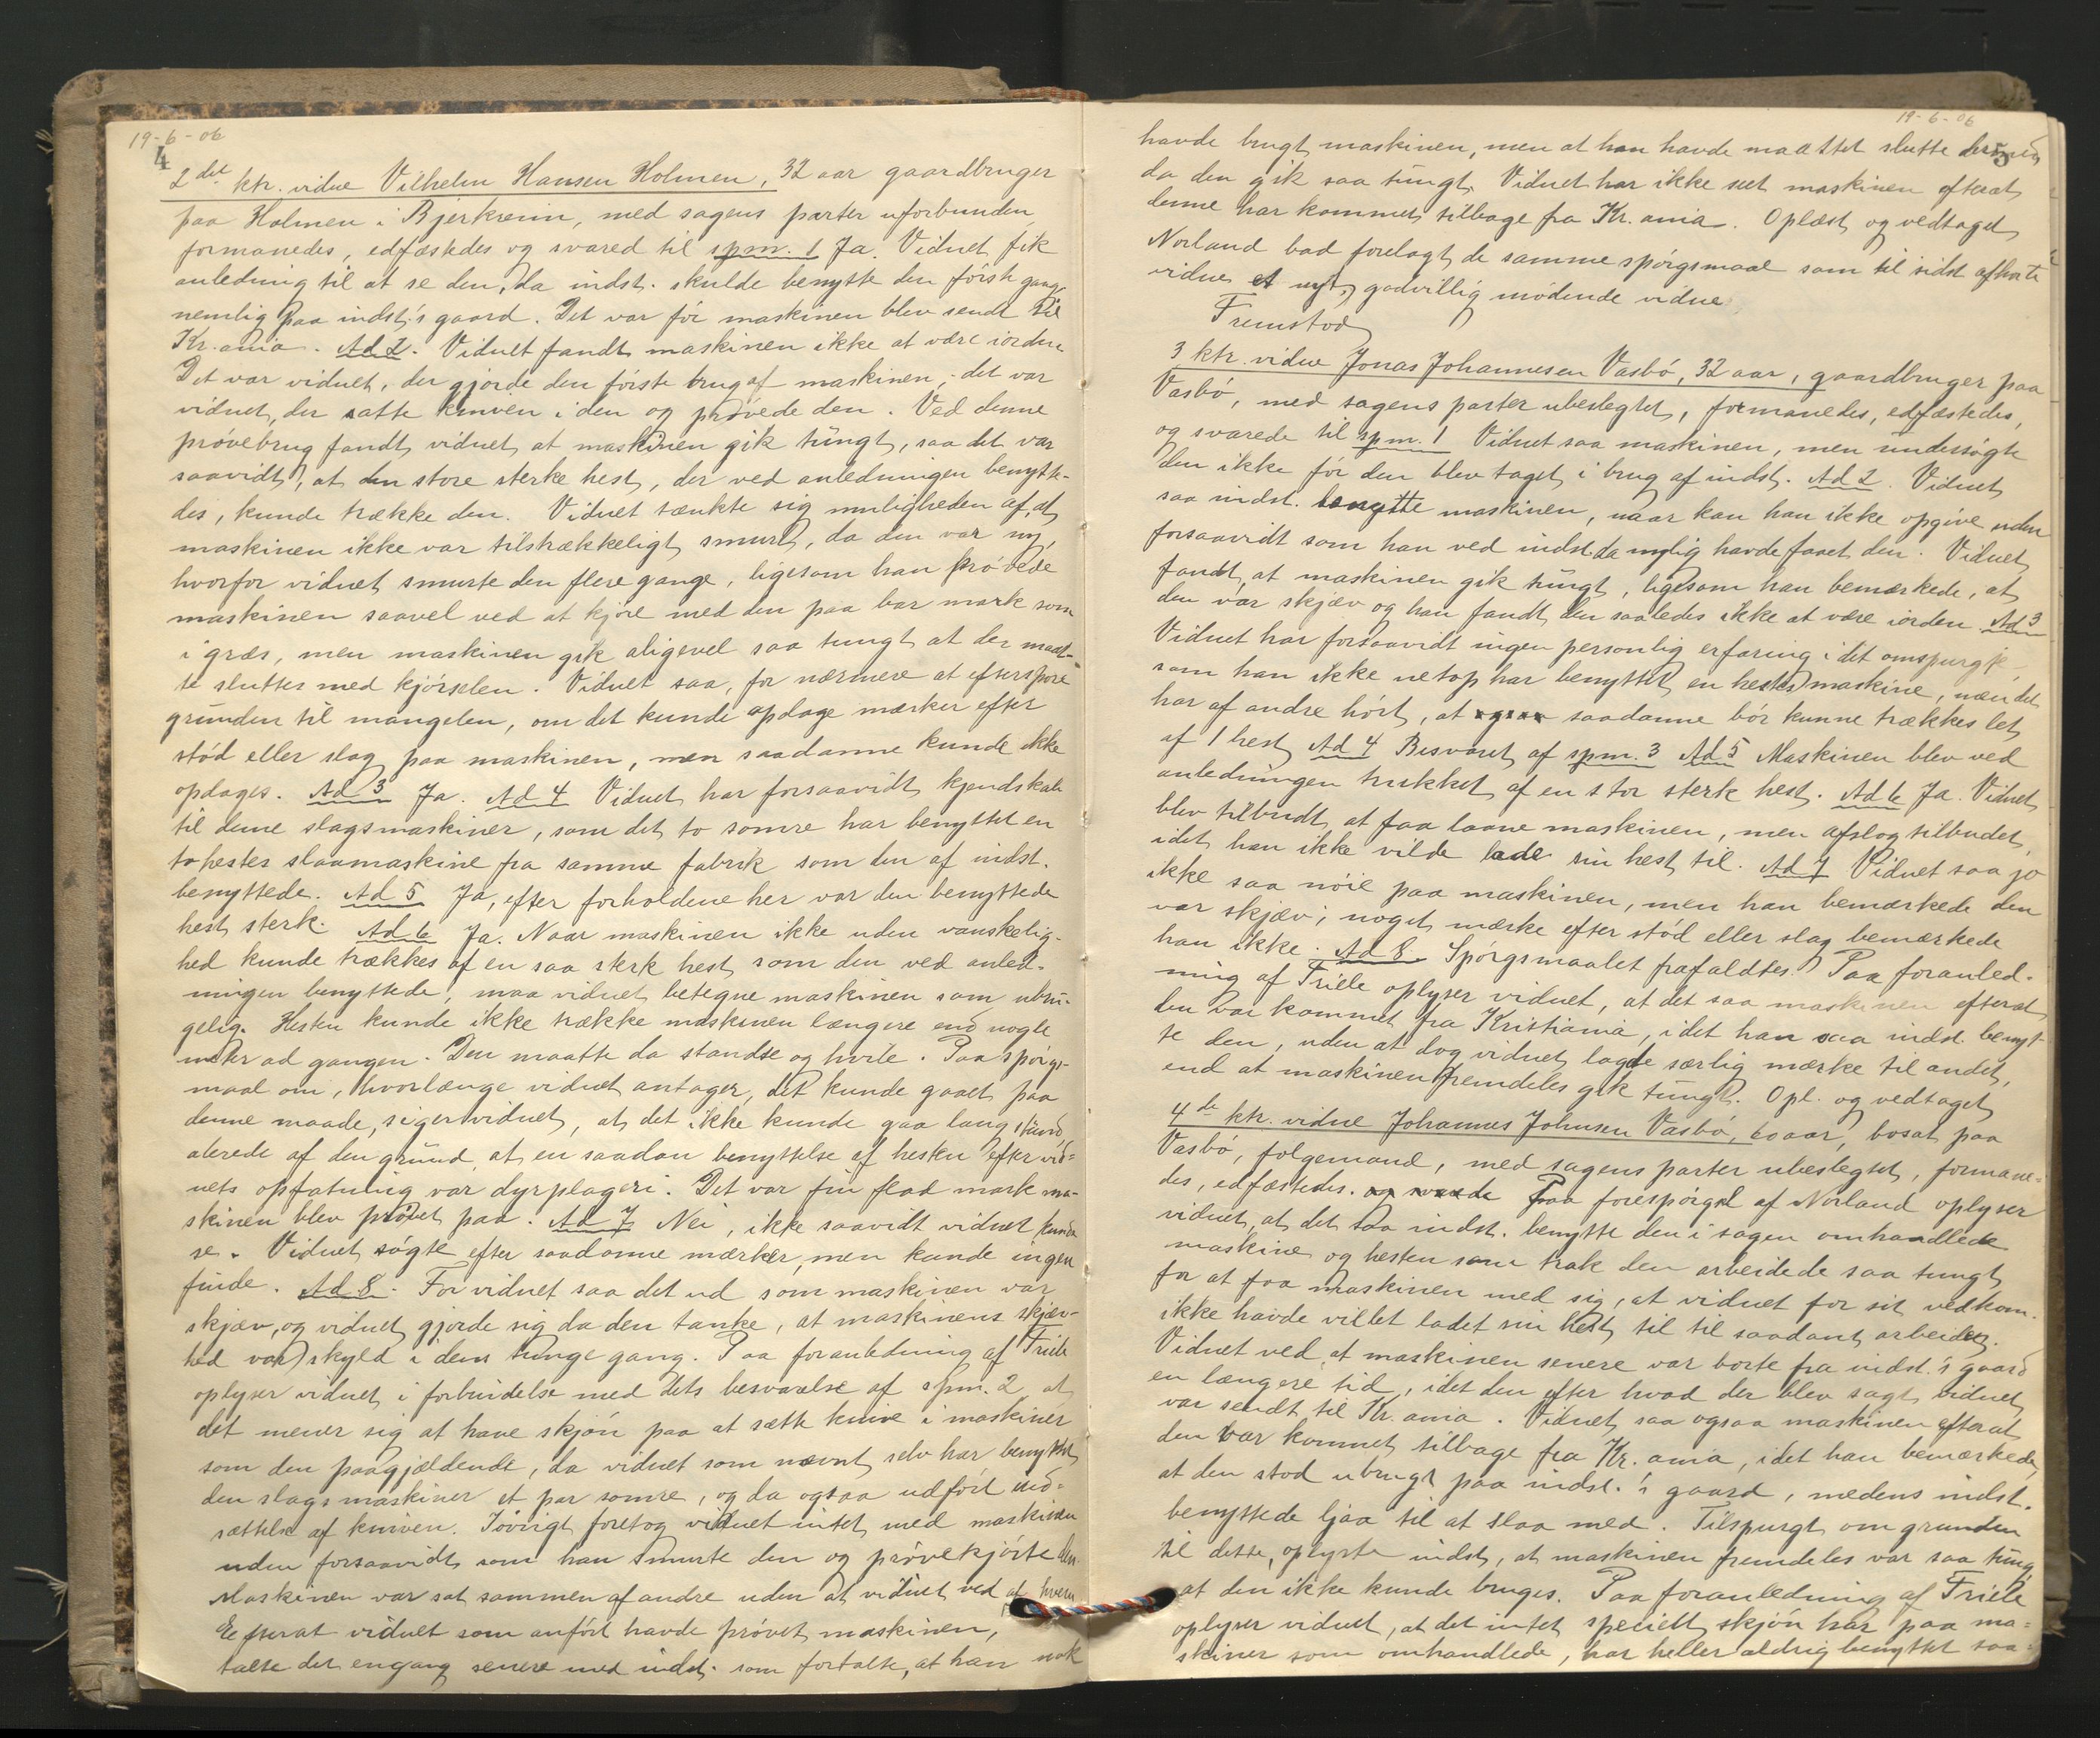 19-6-06
4
2det ktr. vidne Vilhelm Hansen Holmen, 32 aar gaardbruger
paa Holmen i Bjerkreim, med sagens parter uforbunden,
formanedes, edfæstedes og svared til spm. 1 Ja. Vidnet fik
anledning til at se den, da indst. skulde benytte den först gang,
nemlig paa indst.'s gaard. Det var för maskinen blev sendt til
Kr.ania. Ad 2. Vidnet fandt maskinen ikke at være iorden
Det var vidnet, der gjorde den förste brug af maskinen, det var
vidnet, der satte kniven i den og prövede den. Ved denne
prövebrug fandt vidnet at maskinen gik tungt, saa det var
saavidt, at den store sterke hest, der ved anledningen benytte-
des, kunde trække den. Vidnet tænkte sig muligheden af, at
maskinen ikke var tilstrækkeligt smurt, da den var ny,
hvorfor vidnet smurte den flere gange, ligesom han prövede
maskinen saavel ved at kjöre med den paa bar mark som
i græs, men maskinen gik aligevel saa tungt at der maat-
te sluttes med kjörselen. Vidnet saa, for nærmere at efterspore
grunden til mangelen, om det kunde opdage mærker efter
stöd eller slag paa maskinen, men saadanne kunde ikke
opdages. Ad 3 Ja. Ad 4 Vidnet har forsaavidt kjendskab
til denne slags maskiner, som det to somre har benyttet en
tohestes slaamaskine fra samme fabrik som den af indst.
benyttede. Ad 5 Ja, efter forholdene her var den benyttede
hest sterk. Ad 6 Ja. Naar maskinen ikke uden vanskelig-
hed kunde trækkes af en saa sterk hest som den ved anled-
ningen benyttede, maa vidnet betegne maskinen som ubru-
gelig. Hesten kunde ikke trække maskinen længere end nogle
meter ad gangen. Den maatte da standse og hvile. Paa spörgs-
maal om, hvorlænge vidnet antager, det kunde gaaet paa
denne maade, siger vidnet, at det ikke kunde gaa lang stund
alerede af den grund, at en saadan benyttelse af hesten efter vid-
nets opfatning var dyrplageri. Det var fin flad mark ma-
skinen blev prövet paa. Ad 7 Nei, ikke saavidt vidnet kunde
se. Vidnet sögte efter saadanne mærker, men kunde ingen
finde. Ad 8. For vidnet saa det ud som maskinen var
skjæv, og vidnet gjorde sig da den tanke, at maskinens skjæv-
hed var skyld i dens tunge gang. Paa foranledning af Friele
oplyser vidnet i forbindelse med dets besvarelse af spm. 2, at
det mener sig at have skjön paa at sætte knive i maskiner
som den paagjældende, da vidnet som nævnt selv har benyttet
den slags maskiner et par somre, og da ogsaa udfört ind-
sættelse af kniven. Iövrigt foretog vidnet intet med maskinen
uden forsaavidt som han smurte den og prövekjörte den.
Maskinen var sat sammen af andre uden at vidnet ved af hvem
Efterat vidnet som anfört havde prövet maskinen,
talte det engang senere med indst. som fortalte, at han nok
19-6-06
5
havde brugt maskinen, men at han havde maattet slutte dermed
da den gik saa tungt. Vidnet har ikke seet maskinen efterat
denne har kommet tilbage fra Kr.ania. Oplæst og vedtaget
Norland bad forelagt de samme spörgsmaal som til sidst afhörte
vidne et nyt, godvillig mödende vidne
Fremstod
3 ktr. vidne Jonas Johannesen Vasbö, 32 aar, gaardbruger paa
Vasbö, med sagens parter ubeslegtet, formanedes, edfæstedes,
og svarede til spm. 1 Vidnet saa maskinen, men undersögte
den ikke för den blev taget i brug af indst. Ad 2. Vidnet
saa indst. benytte maskinen, naar kan han ikke opgive uden
forsaavidt som han ved indst. da nylig havde faaet den. Vidnet
fandt at maskinen gik tungt, ligesom han bemærkede, at
den var skjæv og han fandt den saaledes ikke at være iorden Ad 3
Vidnet har forsaavidt ingen personlig erfaring i det omspurgte
som han ikke netop har benyttet en hestes maskine, men det
har af andre hört, at saadanne bör kunne trækkes let
af 1 hest Ad 4 Besvaret af spm. 3 Ad 5 Maskinen blev ved
anledningen trukket af en stor sterk hest. Ad 6 Ja. Vidnet
blev tilbudt at faa laane maskinen, men afslog tilbudet,
idet han ikke vilde lade sin hest til. Ad 7 Vidnet saa jo
ikke saa nöie paa maskinen, men han bemærkede den
var skjæv; noget mærke efter stöd eller slag bemærkede
han ikke. Ad 8. Spörgsmaalet frafaldtes. Paa foranled-
ning af Friele oplyser vidnet, at det saa maskinen efterat
den var kommet fra Kristiania, idet han saa indst. benyt-
te den, uden at dog vidnet lagde særlig mærke til andet,
end at maskinen fremdeles gik tungt. Opl. og vedtaget
4de ktr. vidne Johannes Johnsen Vasbö, 60 aar, bosat paa
Vasbö, folgemand, med sagens parter ubeslegtet, formane-
des, edfæstedes. og svarede Paa forespörgsl af Norland oplyser
vidnet, at det saa indst. benytte den i sagen omhandlede
maskine og hesten som trak den arbeidede saa tungt
for at faa maskinen med sig, at vidnet for sit vedkom.
ikke havde villet ladet sin hest til til saadant arbeide.
Vidnet ved, at maskinen senere var borte fra indst.'s gaard
en længere tid, idet den efter hvad der blev sagt vidnet
var sendt til Kr.ania. Vidnet saa ogsaa maskinen efterat
den var kommet tilbage fra Kr.ania, idet han bemærkede,
at den stod ubrugt paa indst.'s gaard, medens indst.
benyttede ljaa til at slaa med. Tilspurgt om grunden
til dette, oplyste indst., at maskinen fremdeles var saa tung,
at den ikke kunde bruges. Paa foranledning af Friele
oplyser vidnet, at det intet specielt skjön har paa ma-
skiner som omhandlede, har heller aldrig benyttet saa-